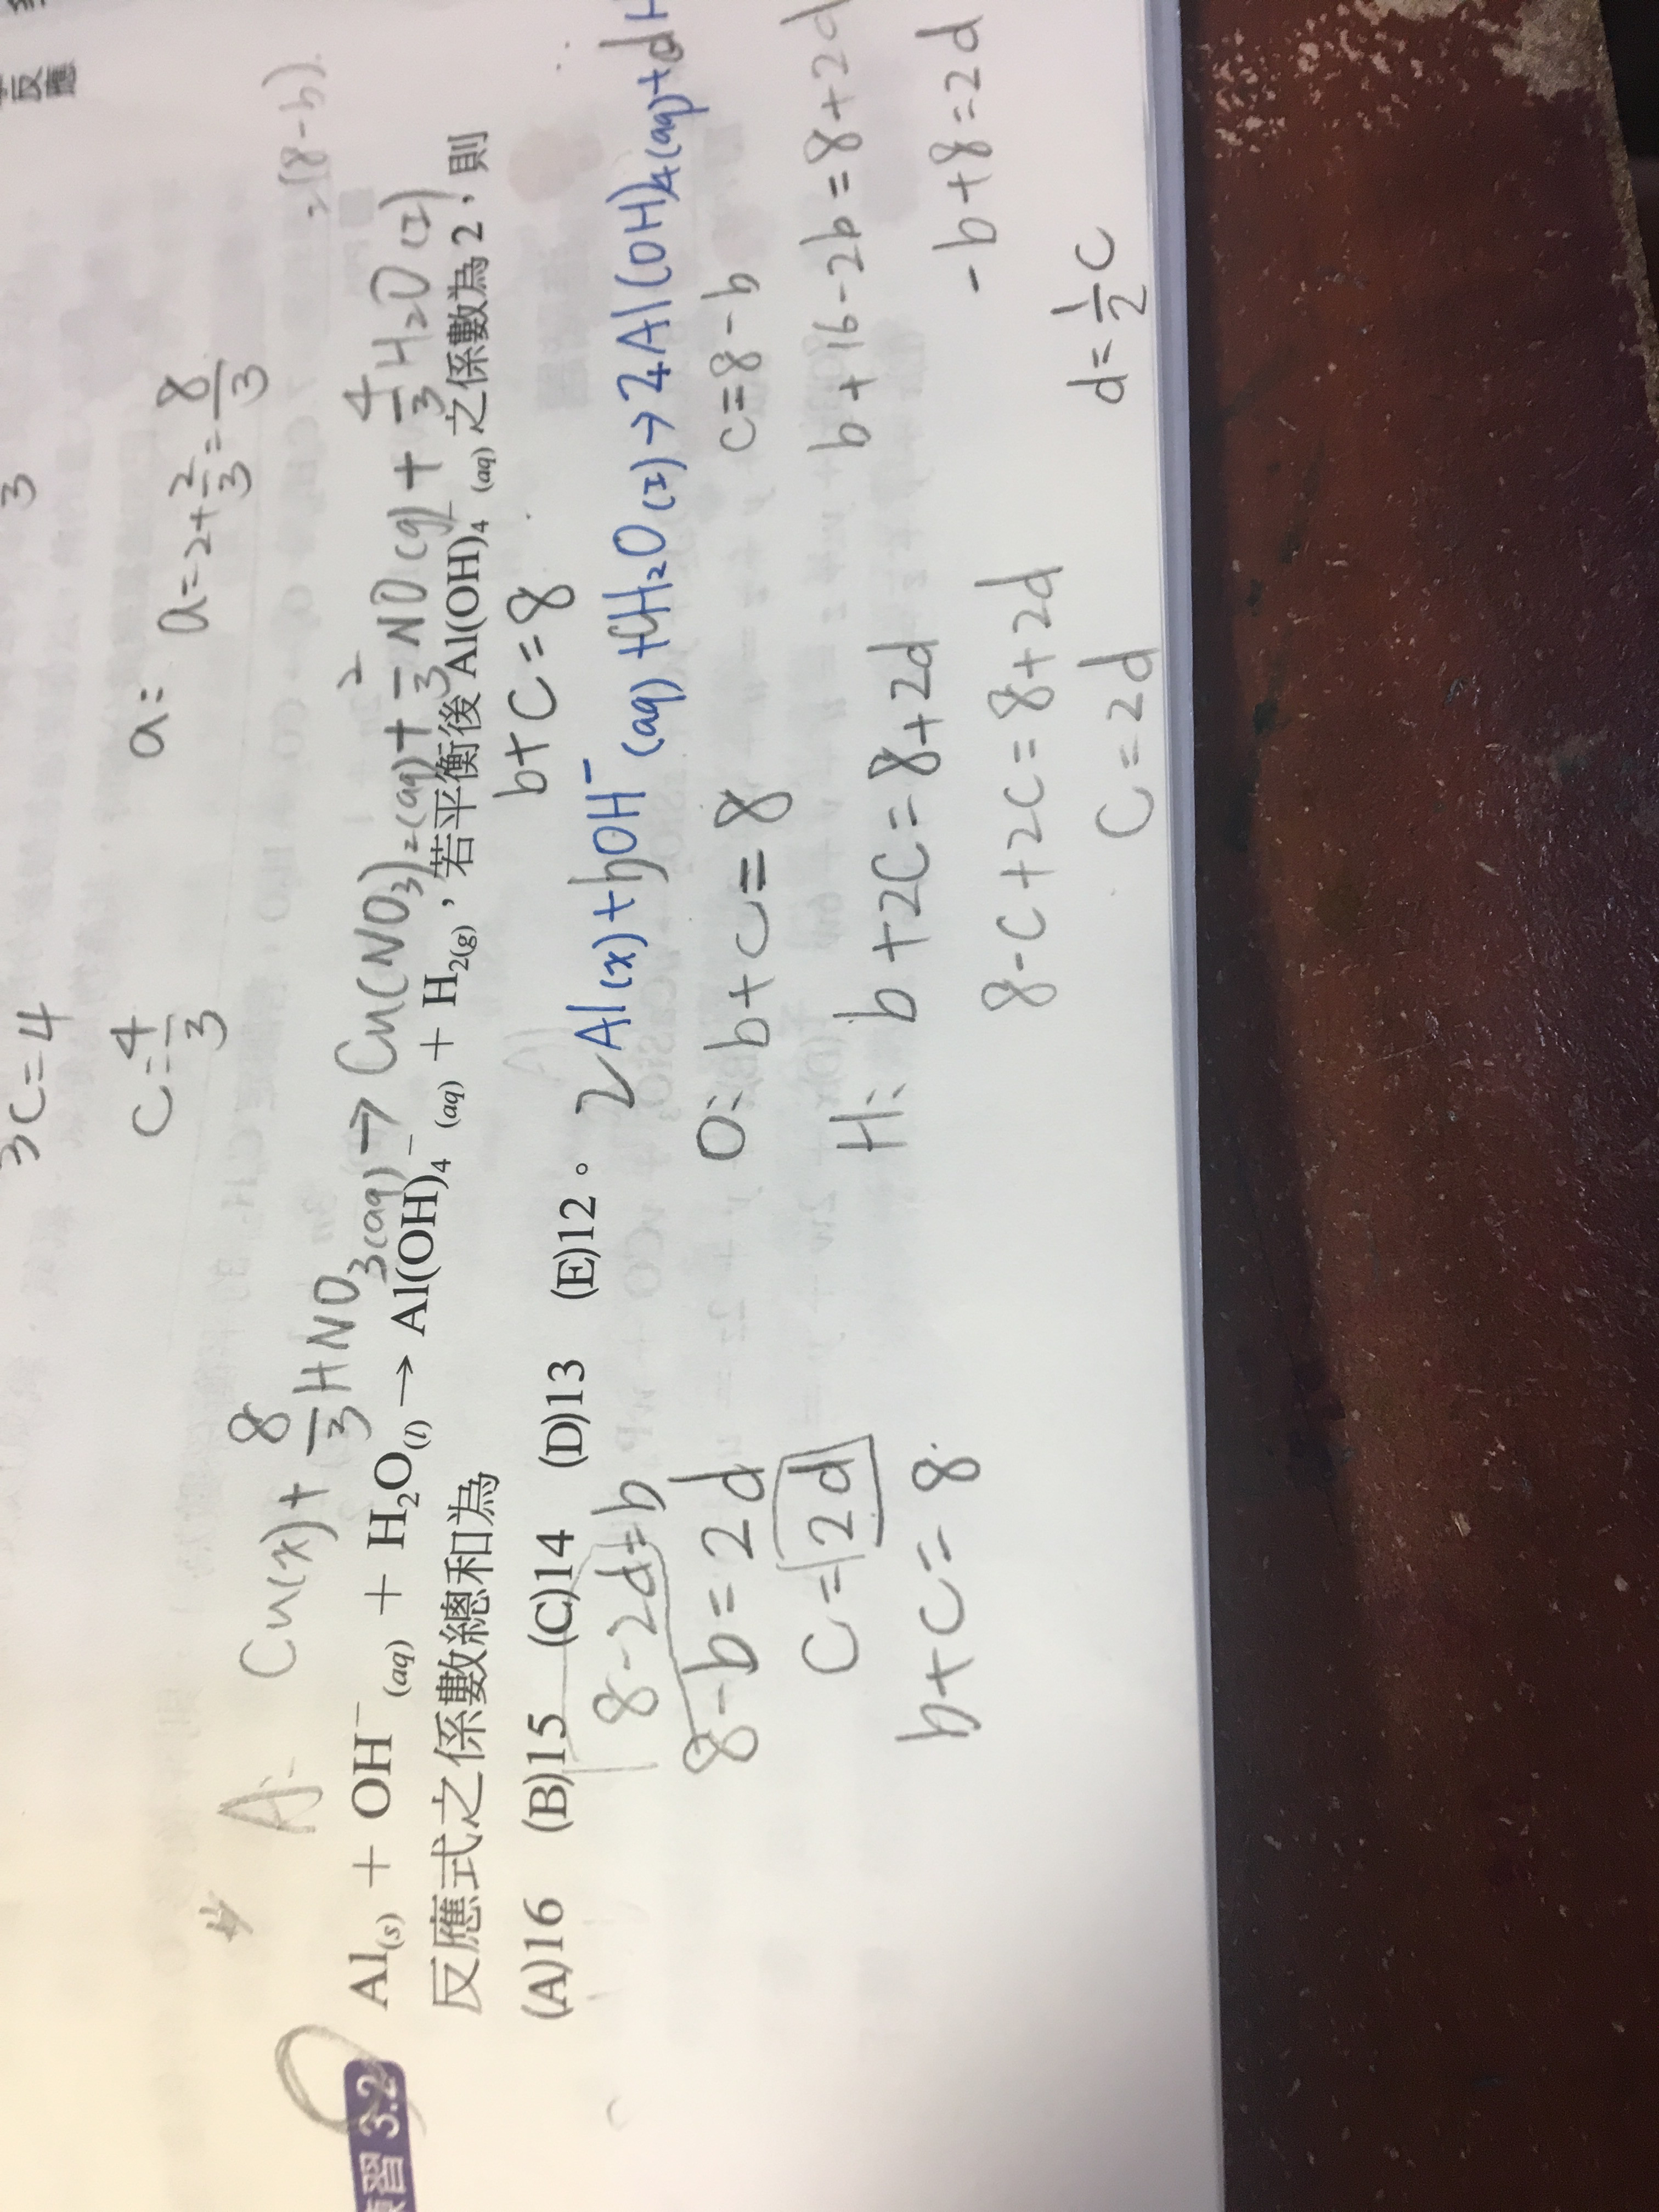 反應
3
3C=4
C=4/3
a:
a=2+2/3=8/3
=(8-b).
A:
Cu(x)+8/3HNO3(aq)→Cu(NO3)2(aq)+2/3NO(g)+4/3H2O(l)
習 3.2
Al(s) + OH⁻(aq) + H2O(l) → Al(OH)4⁻(aq) + H2(g)，若平衡後 Al(OH)4⁻(aq) 之係數為 2，則
反應式之係數總和為
b+C=8
(A)16 (B)15 (C)14 (D)13 (E)12。
2Al(s)+bOH⁻(aq)+CH2O(l)→2Al(OH)4(aq)+dH
8-2d=b
8-b=2d
C=2d
b+C=8.
O: b+C=8
H: b+2C=8+2d
8-C+2C=8+2d
C=2d
C=8-b
b+16-2b=8+2d
-b+8=2d
d=1/2C